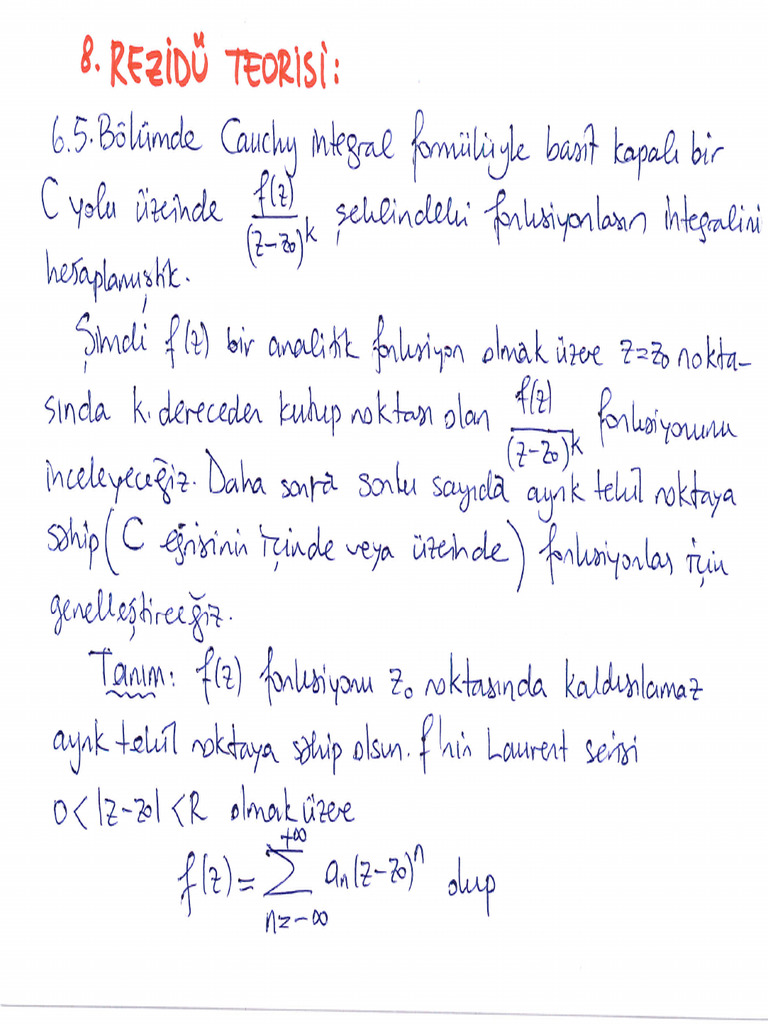 8. REZİDÜ TEORİSİ:
6.5. Bölümde Cauchy integral formülüyle basit kapalı bir
C yolu üzerinde f(z)/(z-z₀)^k şeklindeki fonksiyonların integralini
hesaplamıştık.
Şimdi f(z) bir analitik fonksiyon olmak üzere z=z₀ nokta-
sında k. dereceden kutup noktası olan f(z)/(z-z₀)^k fonksiyonunu
inceleyeceğiz. Daha sonra sonlu sayıda ayrık tekil noktaya
sahip (C eğrisinin içinde veya üzerinde) fonksiyonlar için
genelleştireceğiz.
Tanım: f(z) fonksiyonu z₀ noktasında kaldırılamaz
ayrık tekil noktaya sahip olsun. f'nin Laurent serisi
0<|z-z₀|<R olmak üzere
f(z) = ∑_{n=-∞}^{+∞} aₙ(z-z₀)ⁿ olup